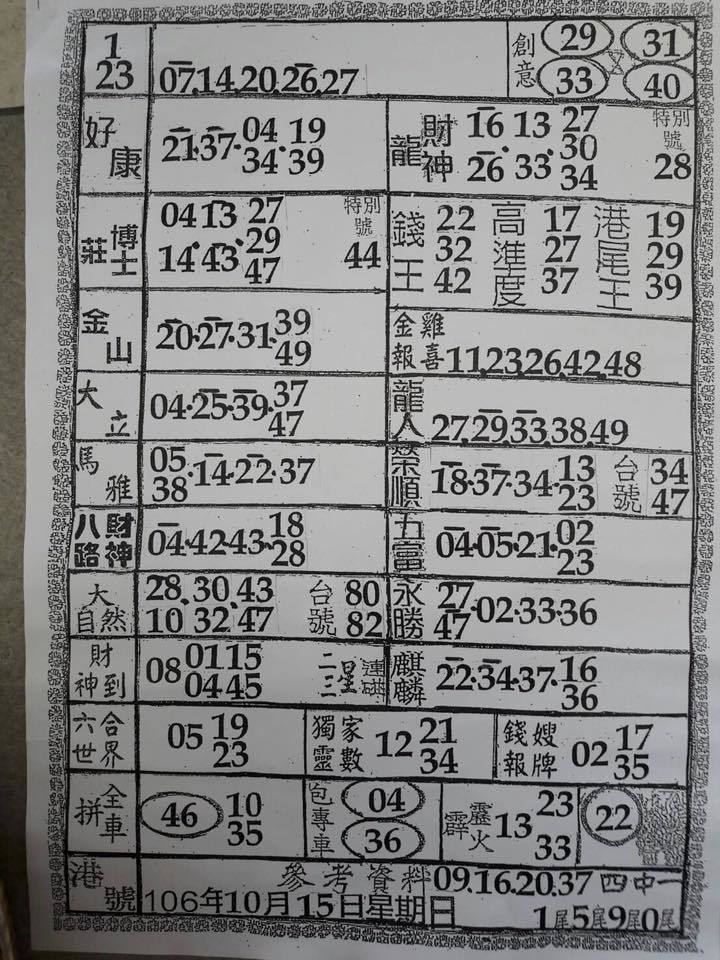 1
23
07,14,20,26,27
創意
29 31
33 40
好康
21·37·04·19
34·39
龍財神
16·13·27
30
26·33·34
特別號
28
莊博士
04 13 27
29
14·43·47
特別號
44
錢王
22
32
42
高準度
17
27
37
港尾王
19
29
39
金山
20·27·31·39
49
金雞報喜
11,23,26,42,48
大立
04·25·39·37
47
龍人
27,29,33,38,49
馬雅
05
38·14·22·37
榮順
18·37·34·13
23
台號
34
47
八路財神
04·42·43·18
28
五富
04·05·21·02
23
大自然
28,30,43
10 32 47
台號
80
82
永勝
27
47·02·33·36
財神到
08 01 15
04 45
二三星連碰
麒麟
22·34·37·16
36
六合世界
05 19
23
獨家靈數
12 21
34
錢嫂報牌
02 17
35
全車拼
46 10
35
包專車
04
36
霹靂火
13 23
33
22
港號
參考資料 09.16.20.37 四中一
106年10月15日星期日
1尾5尾9尾0尾